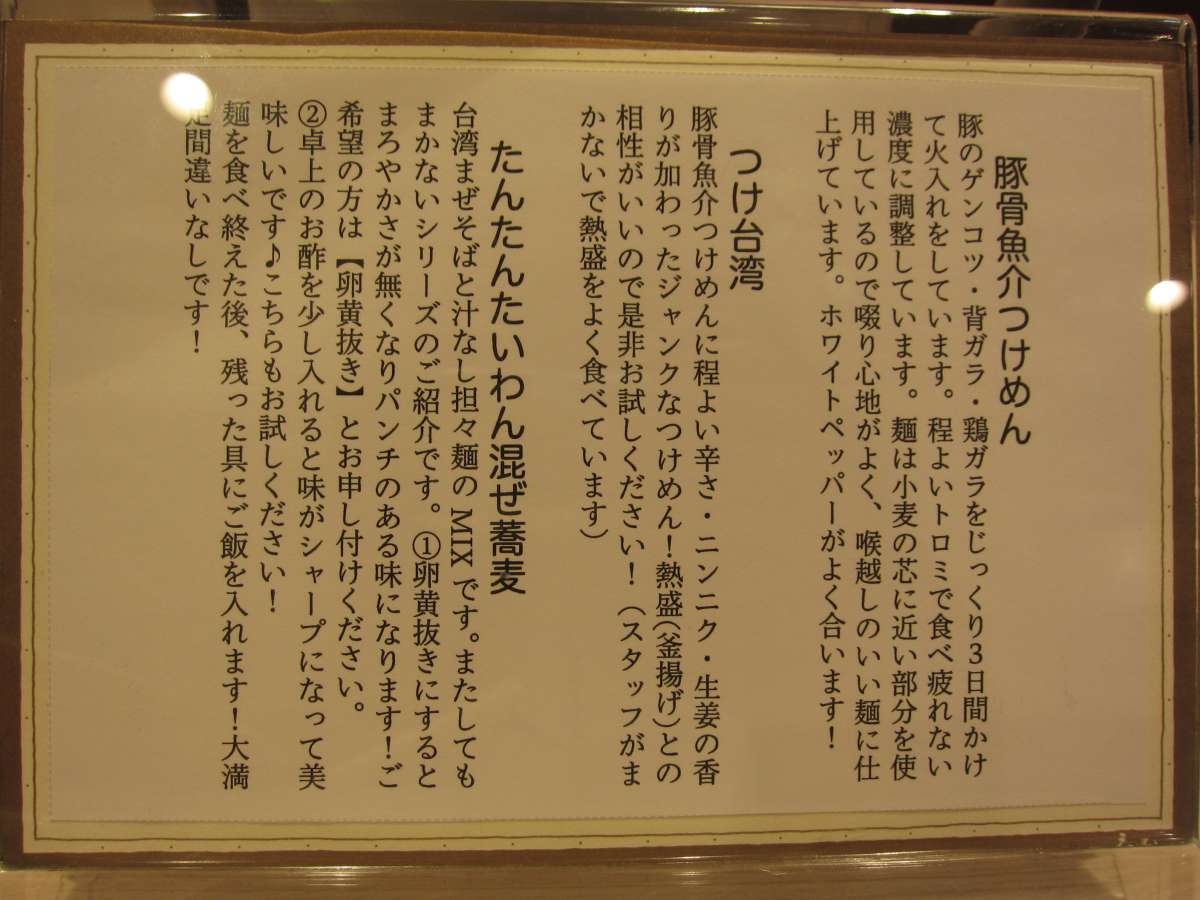 豚骨魚介つけめん
豚のゲンコツ・背ガラ・鶏ガラをじっくり3日間かけ
て火入れをしています。程よいトロミで食べ疲れない
濃度に調整しています。麺は小麦の芯に近い部分を使
用しているので啜り心地がよく、喉越しのいい麺に仕
上げています。ホワイトペッパーがよく合います！
つけ台湾
豚骨魚介つけめんに程よい辛さ・ニンニク・生姜の香
りが加わったジャンクなつけめん！熱盛(釜揚げ)との
相性がいいので是非お試しください！（スタッフがま
かないで熱盛をよく食べています）
たんたんたいわん混ぜ蕎麦
台湾まぜそばと汁なし担々麺のMIXです。またしても
まかないシリーズのご紹介です。①卵黄抜きにすると
まろやかさが無くなりパンチのある味になります！ご
希望の方は【卵黄抜き】とお申し付けください。
②卓上のお酢を少し入れると味がシャープになって美
味しいです♪こちらもお試しください！
麺を食べ終えた後、残った具にご飯を入れます！大満
足間違いなしです！